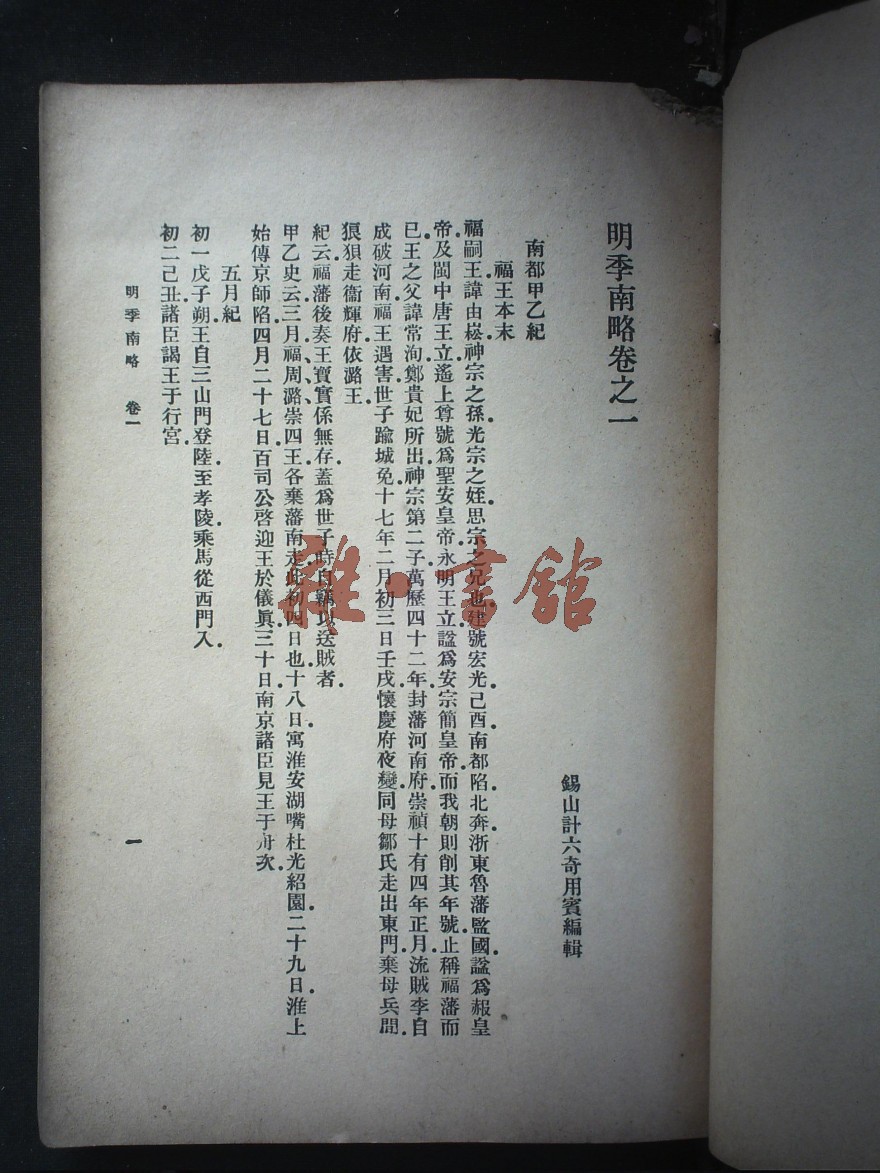 明季南略卷之一
錫山計六奇用賓編輯
南都甲乙紀
福王本末
福嗣王諱由崧.神宗之孫.光宗之姪.思宗之兄也.建號宏光.己酉南都陷.北奔.浙東魯藩監國.諡爲赧皇
帝.及閩中唐王立.遙上尊號爲聖安皇帝.永明王立.諡爲安宗簡皇帝.而我朝則削其年號.止稱福藩而
已.王之父諱常洵.鄭貴妃所出.神宗第二子.萬歷四十二年.封藩河南府.崇禎十有四年正月.流賊李自
成破河南.福王遇害.世子踰城免.十七年二月初三日壬戌.懷慶府夜變.同母鄒氏走出東門.棄母兵間.
狼狽走衞輝府依潞王.
紀云.福藩後奏王寶實係無存.蓋爲世子時自竊以送賊者.
甲乙史云.三月.福、周、潞、崇四王各棄藩南走.此初四日也.十八日.寓淮安湖嘴杜光紹園.二十九日.淮上
始傳京師陷.四月二十七日.百司公啓迎王於儀眞.三十日.南京諸臣見王于舟次.
五月紀
初一戊子朔.王自三山門登陸.至孝陵.乘馬從西門入.
初二己丑.諸臣謁王于行宮.
明季南略 卷一
一
雜·書館